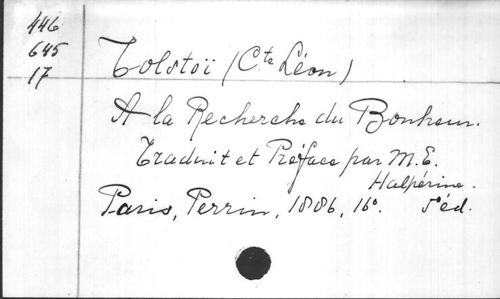 446
645
17
Tolstoï (Cte Léon)
A la Recherche du Bonheur.
Traduit et Préface par M. E.
Halpérine.
Paris, Perrin, 1886, 16o. 5e éd.